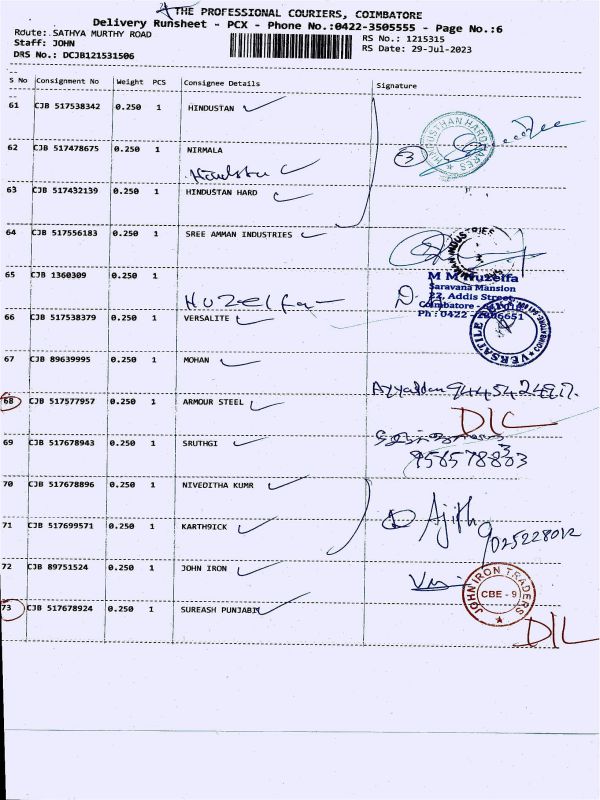 THE PROFESSIONAL COURIERS, COIMBATORE
Delivery Runsheet - PCX - Phone No.:0422-3505555 - Page No.:6
Route: SATHYA MURTHY ROAD RS No.: 1215315
Staff: JOHN RS Date: 29-Jul-2023
DRS No.: DCJB121531506
S No Consignment No Weight PCS Consignee Details Signature
61 CJB 517538342 0.250 1 HINDUSTAN
HINDUSTHAN HARDWARES
62 CJB 517478675 0.250 1 NIRMALA
3
63 CJB 517432139 0.250 1 HINDUSTAN HARD
64 CJB 517556183 0.250 1 SREE AMMAN INDUSTRIES
65 CJB 1360309 0.250 1
Huzeifa
M M Huzeifa
Saravana Mansion
22, Addis Street,
Coimbatore
Ph : 0422 -
66 CJB 517538379 0.250 1 VERSALITE
VERSATILE
67 CJB 89639995 0.250 1 MOHAN
68 CJB 517577957 0.250 1 ARMOUR STEEL
D/L
69 CJB 517678943 0.250 1 SRUTHGI
70 CJB 517678896 0.250 1 NIVEDITHA KUMR
Ajith
9025228012
71 CJB 517699571 0.250 1 KARTH9ICK
72 CJB 89751524 0.250 1 JOHN IRON
JOHN IRON TRADERS
CBE - 9
73 CJB 517678924 0.250 1 SUREASH PUNJABI
D/L